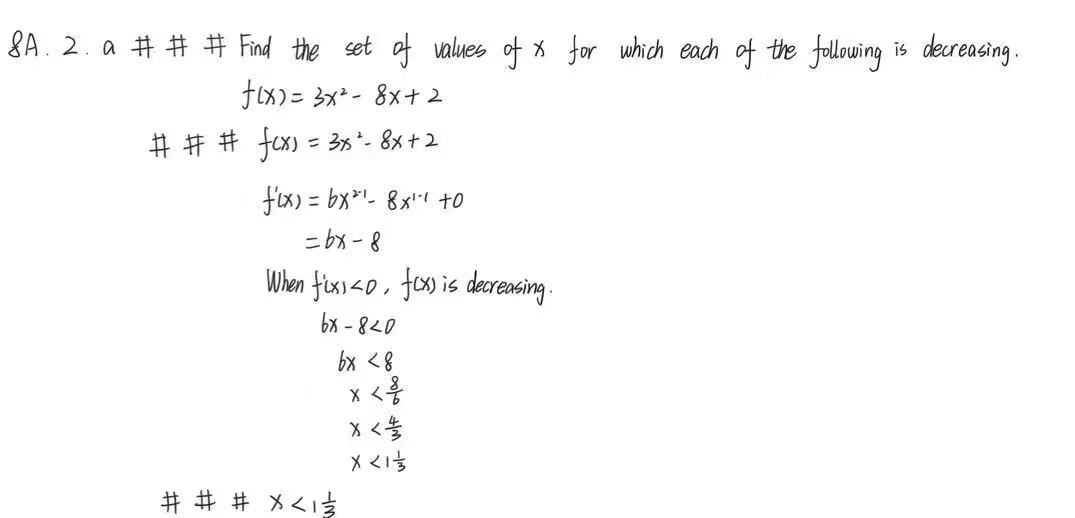 8A. 2. a # # # Find the set of values of x for which each of the following is decreasing.
f(x) = 3x² - 8x + 2
# # # f(x) = 3x² - 8x + 2
f'(x) = 6x²⁻¹ - 8x¹⁻¹ + 0
= 6x - 8
When f'(x) < 0, f(x) is decreasing.
6x - 8 < 0
6x < 8
x < 8/6
x < 4/3
x < 1 1/3
# # # x < 1 1/3